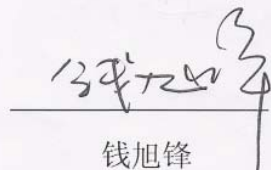 钱旭锋
钱旭锋